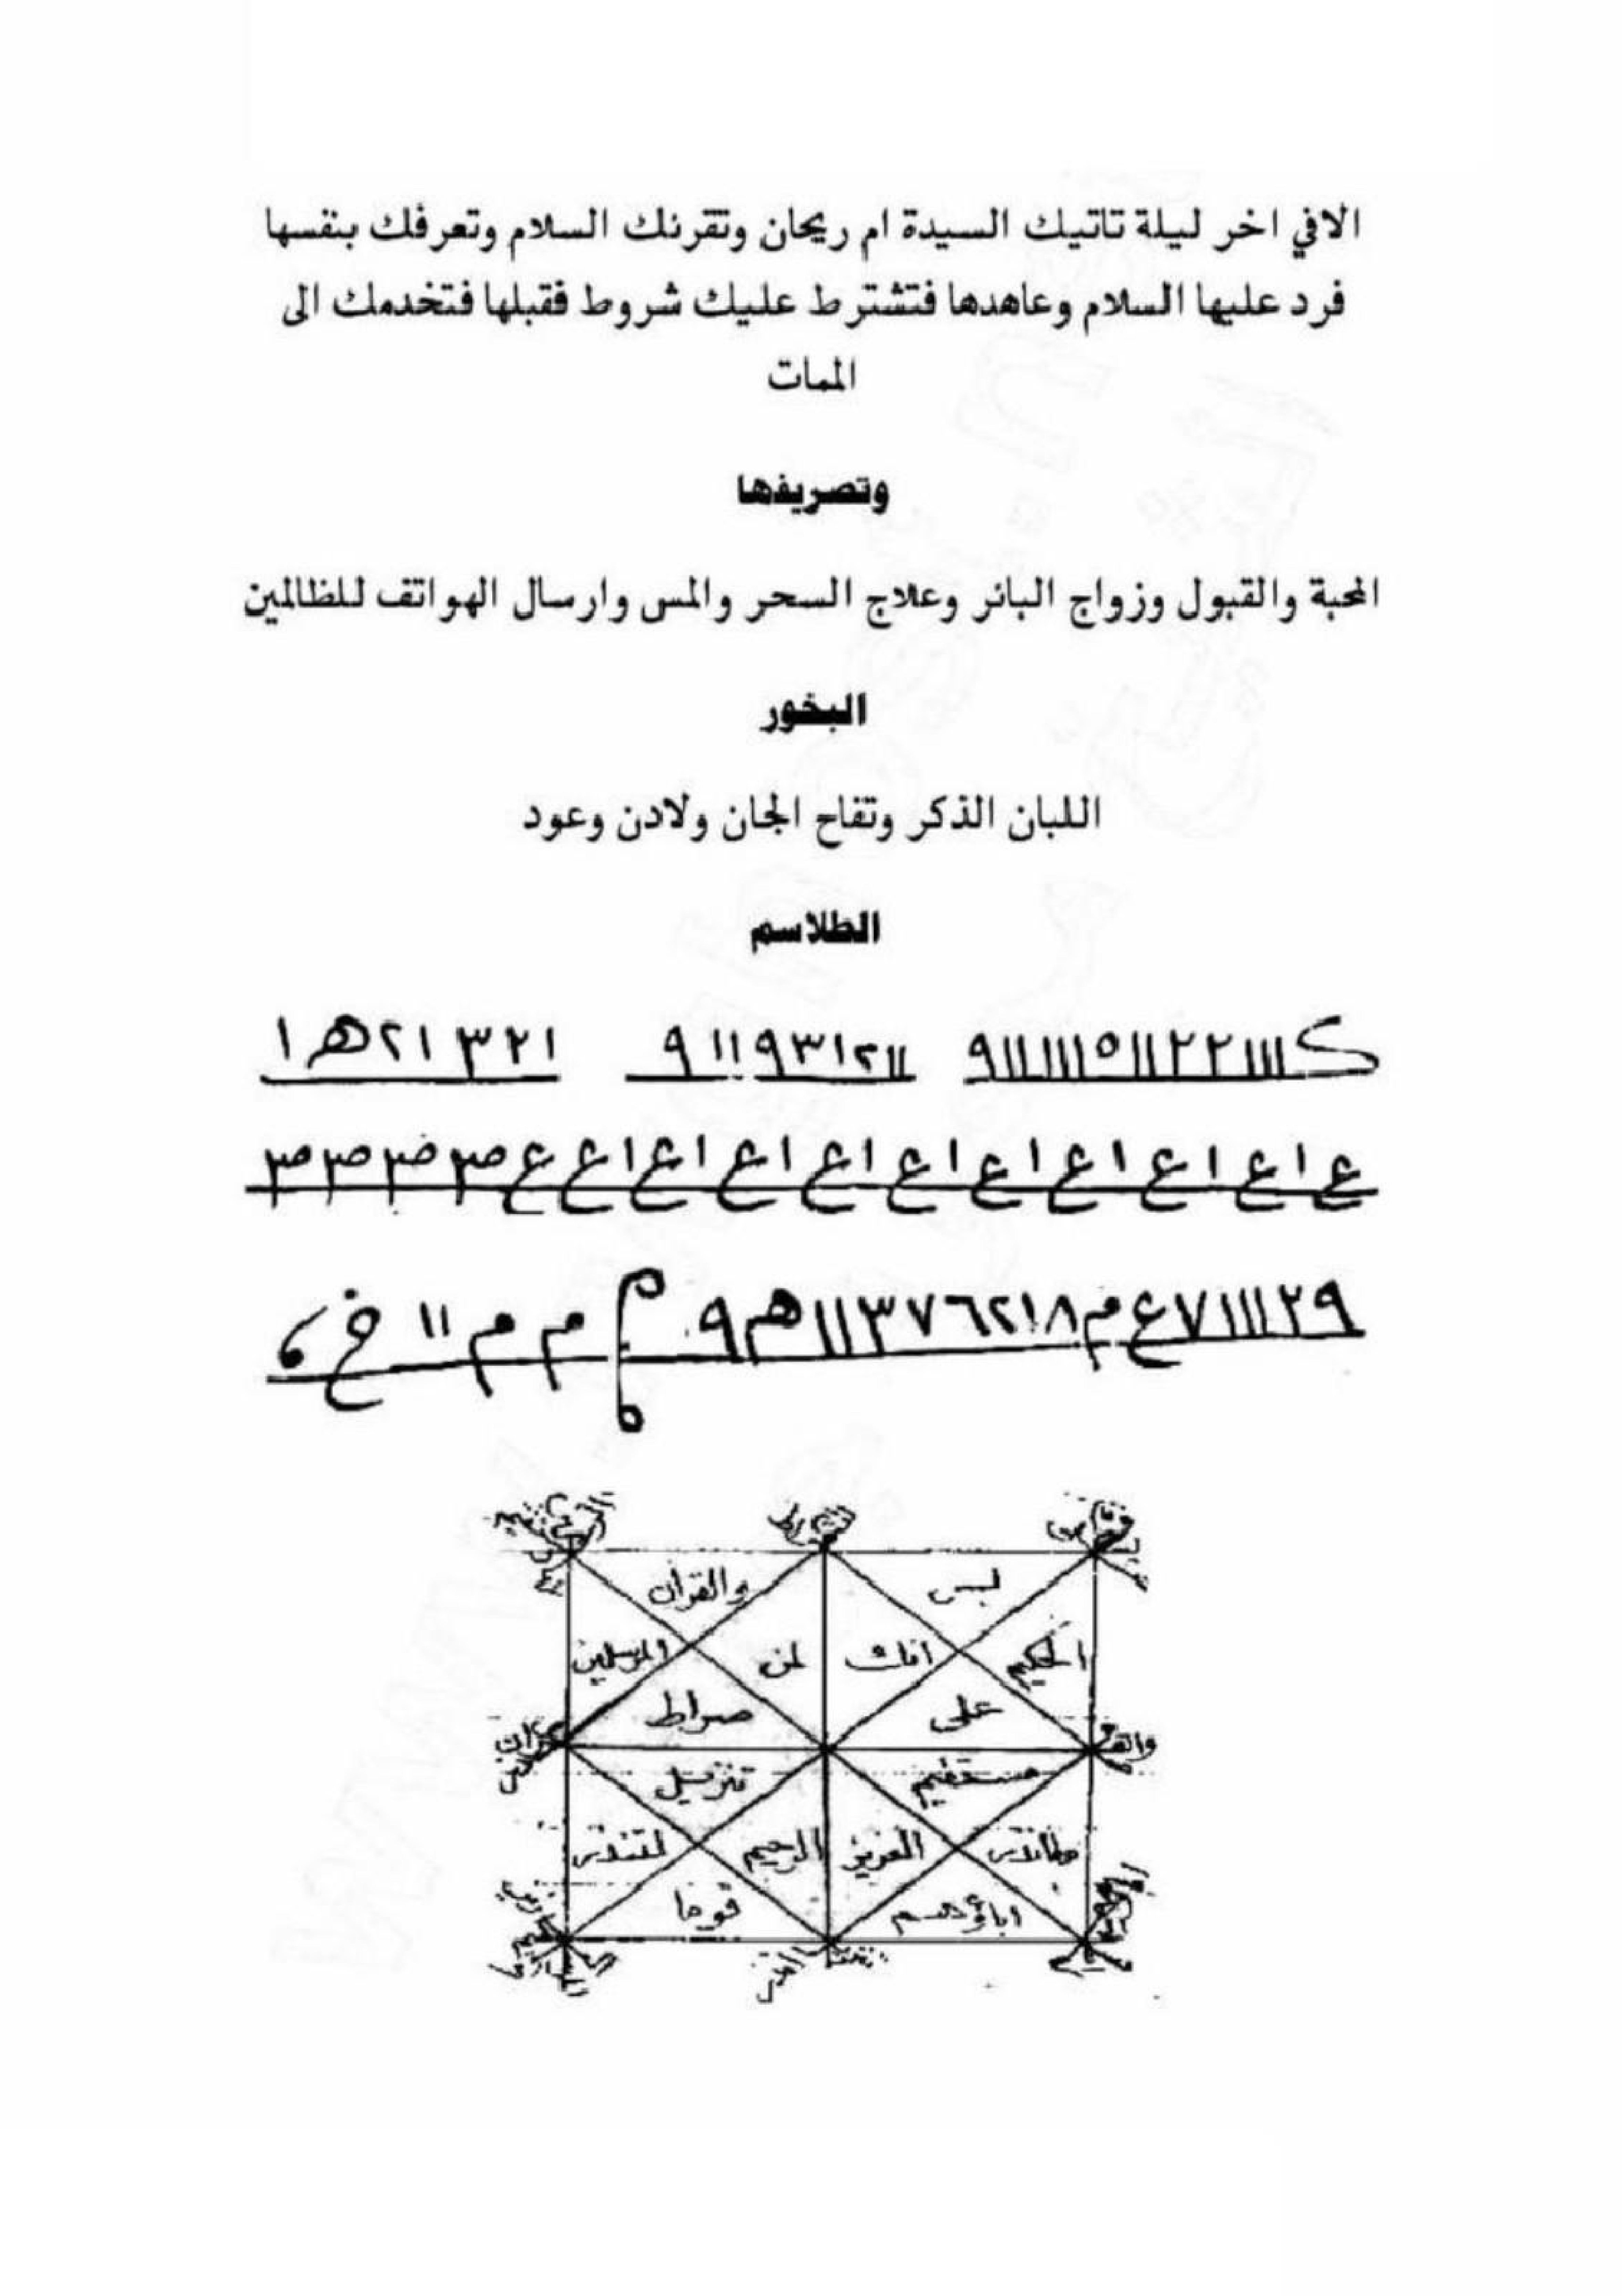 الافي اخر ليلة تاتيك السيدة ام ريحان وتقرئك السلام وتعرفك بنفسها
فرد عليها السلام وعاهدها فتشترط عليك شروط فقبلها فتخدمك الى
الممات
وتصريفها
المحبة والقبول وزواج البائر وعلاج السحر والمس وارسال الهواتف للظالمين
البخور
اللبان الذكر وتفاح الجان ولادن وعود
الطلاسم
ك١١١١٢٢١١٥١١١١١١٩ ١١٢١٣٩١١٩ ١٢٣ ١٢هـ١
ع ا ع ا ع ا ع ا ع ا ع ا ع ا ع ا ع ا ع ع صم صم ضم صم
٩٢١١١١٧ع م ٨١٢٦٧٣١١هـ٩ م م ١١ خ
لبس والقران
الحكيم انك لمن المرسلين
على صراط
مستقيم تنزيل
العزيز الرحيم لتنذر
اباؤهم قوما